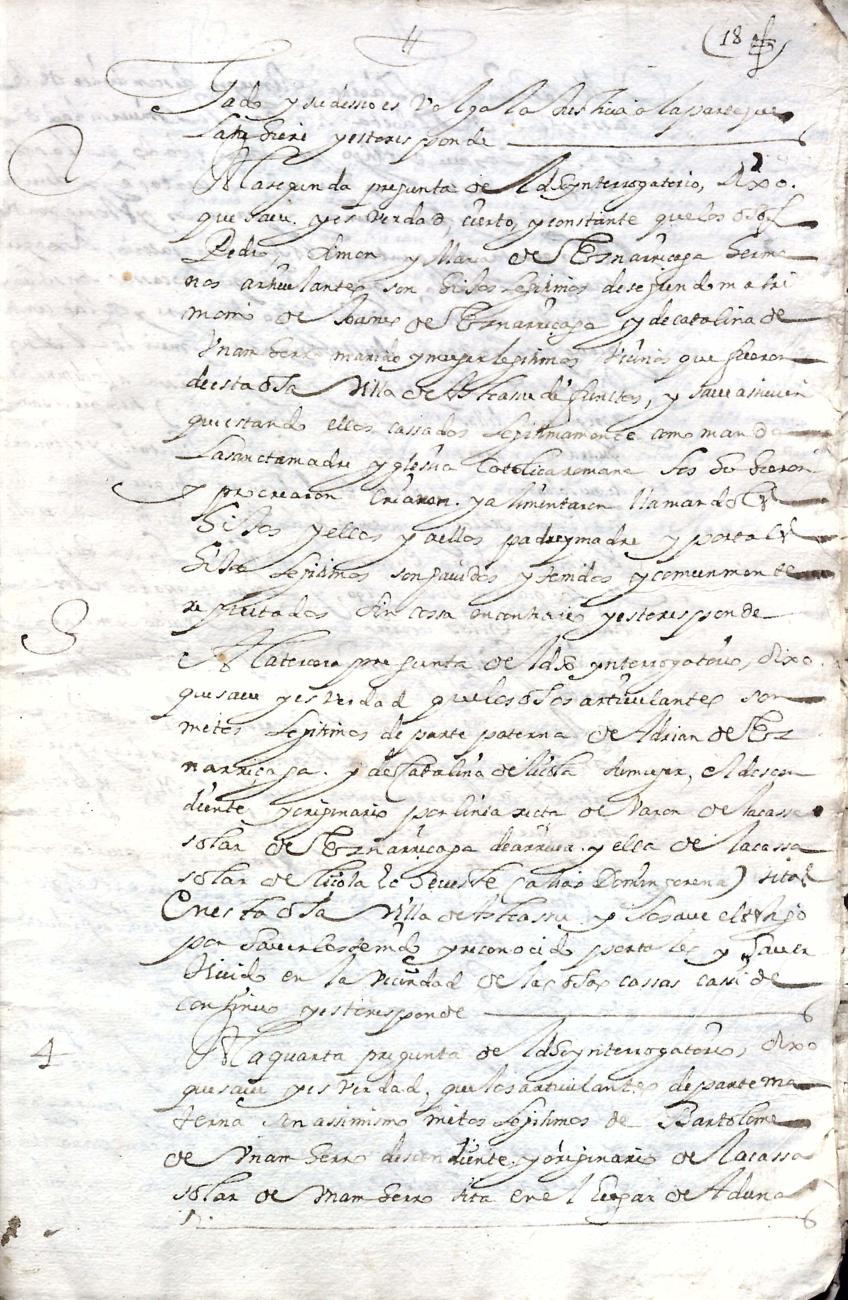 18
tado y su desseo es Valga la Justicia a la parte que
la tubiere y esto responde
2
A la segunda pregunta de el dho ynterrogatorio, dixo
que saue y es Verdad, cierto, y constante que los dhos
Pedro, Simon y Maria de herma
nos articulantes son hijos legitimos de segundo matri
monio de Joanes de y de catalina de
marido y muger legitimos Vecinos que fueron
de esta dha Villa de defunctos, y saue
que estando ellos cassados legitimamente como manda
la sancta madre yglesia Catolica romana los hubieron
y procrearon criaron y alimentaron llamandoles
hijos y ellos y a ellos padre y madre y por tales
hijos legitimos son hauidos y tenidos y comunmente
reputados sin cossa en contrario y esto responde
3
A la tercera pregunta de el dho ynterrogatorio, dixo
que saue y es Verdad que los dhos articulantes son
nietos legitimos de parte paterna de Adrian de
y de Catalina de su muger, el descen
diente y originario por linia recta de Varon de la cassa
solar de de arriua y ella de la cassa
solar de sitas
en esta dha Villa de y lo saue el testigo
por hauerlos tenido y reconocido por tales y hauer
Viuido en la Vecindad de las dhas cassas cassi de
continuo y esto responde
4
A la quarta pregunta de el dho ynterrogatorio, dixo
que saue y es Verdad, que los articulantes de parte ma
terna son assimismo nietos legitimos de Bartolome
de descendiente y originario de la cassa
solar de sita en el lugar de Aduna